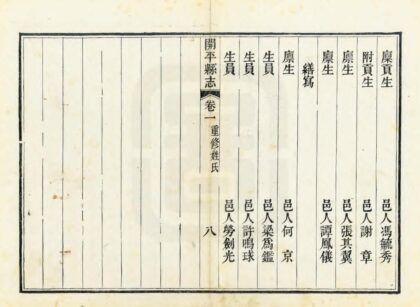 廩貢生 邑人馮毓秀
附貢生 邑人謝章
廩生 邑人張其翼
廩生 邑人譚鳳儀
繕寫
廩生 邑人何京
生員 邑人梁爲鑑
生員 邑人許鳴球
生員 邑人勞劍光
開平縣志 卷一 重修姓氏 八